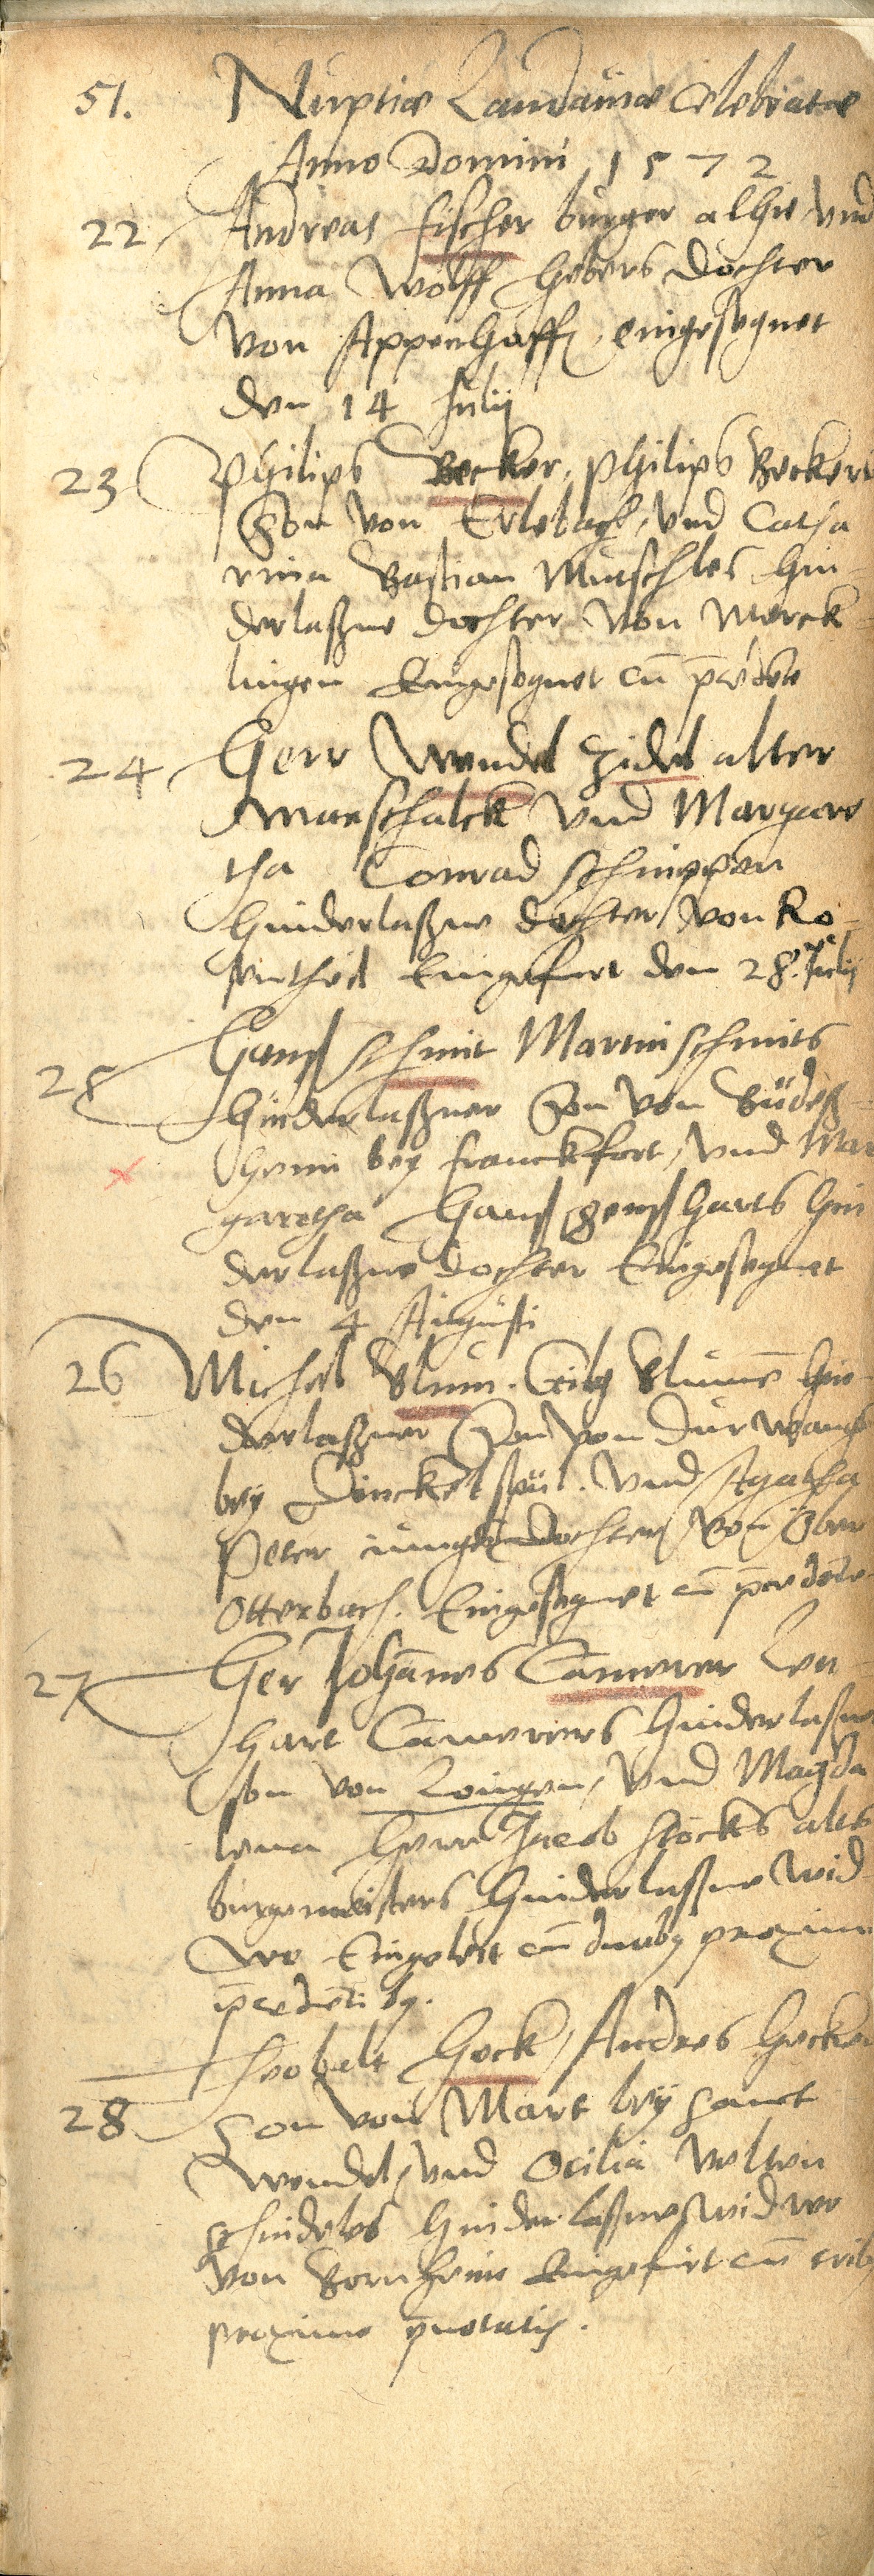 51. Nuptiæ Landauinæ Celebratæ
Anno Domini 1572
22 Andreas Fischer burger alhie und
Anna Wolff Hebers dochter
von Appenhoffen eingesegnet
den 14 Julij
23 Philips Becker, Philips Beckers
Son von Erlebach, und Catha
rina Bastian Mutschlers hin-
derlaßne dochter von Merck-
lingen Eingesegnet cū p̄cedēte
24 Herr Wendel Zidel alter
Marschalck und Margare
tha Conrad Schneppen
hinderlaßne dochter von Ro-
Eingefurt den 28. Julij
25 Hanß Schmit Martin Schmits
hinderlaßner Son von Büdeß-
heim bey Franckfort, und Mar
garetha Hanß harts hin
derlaßne dochter Eingesegnet
den 4 Augusti
26 Michel Blum. Gilg Blumē hin-
derlaßner Son von Durwang
bey Dinckelspul. und Agatha
Peter iungen dochter von Ober
Otterbach. Eingesegnet cū p̄cedēte
27 Her Johānes Cammerer Len-
hart Camerers hinderlaßne
son von Loingen, und Magda
lena Herr Jacob Stöcks alts
burgemeisters hinderlaßne wid-
we Eingeleit cū duobq proxime
p̄cedēti bq.
28 Theobalt Hock, Andres Hocken
Son von Mart bey Sanct
Wendel, und Otilia Velten
Schindels hinderlaßne widwe
von Bornheim Eingefurt cū trib
proxime p̄notatis.